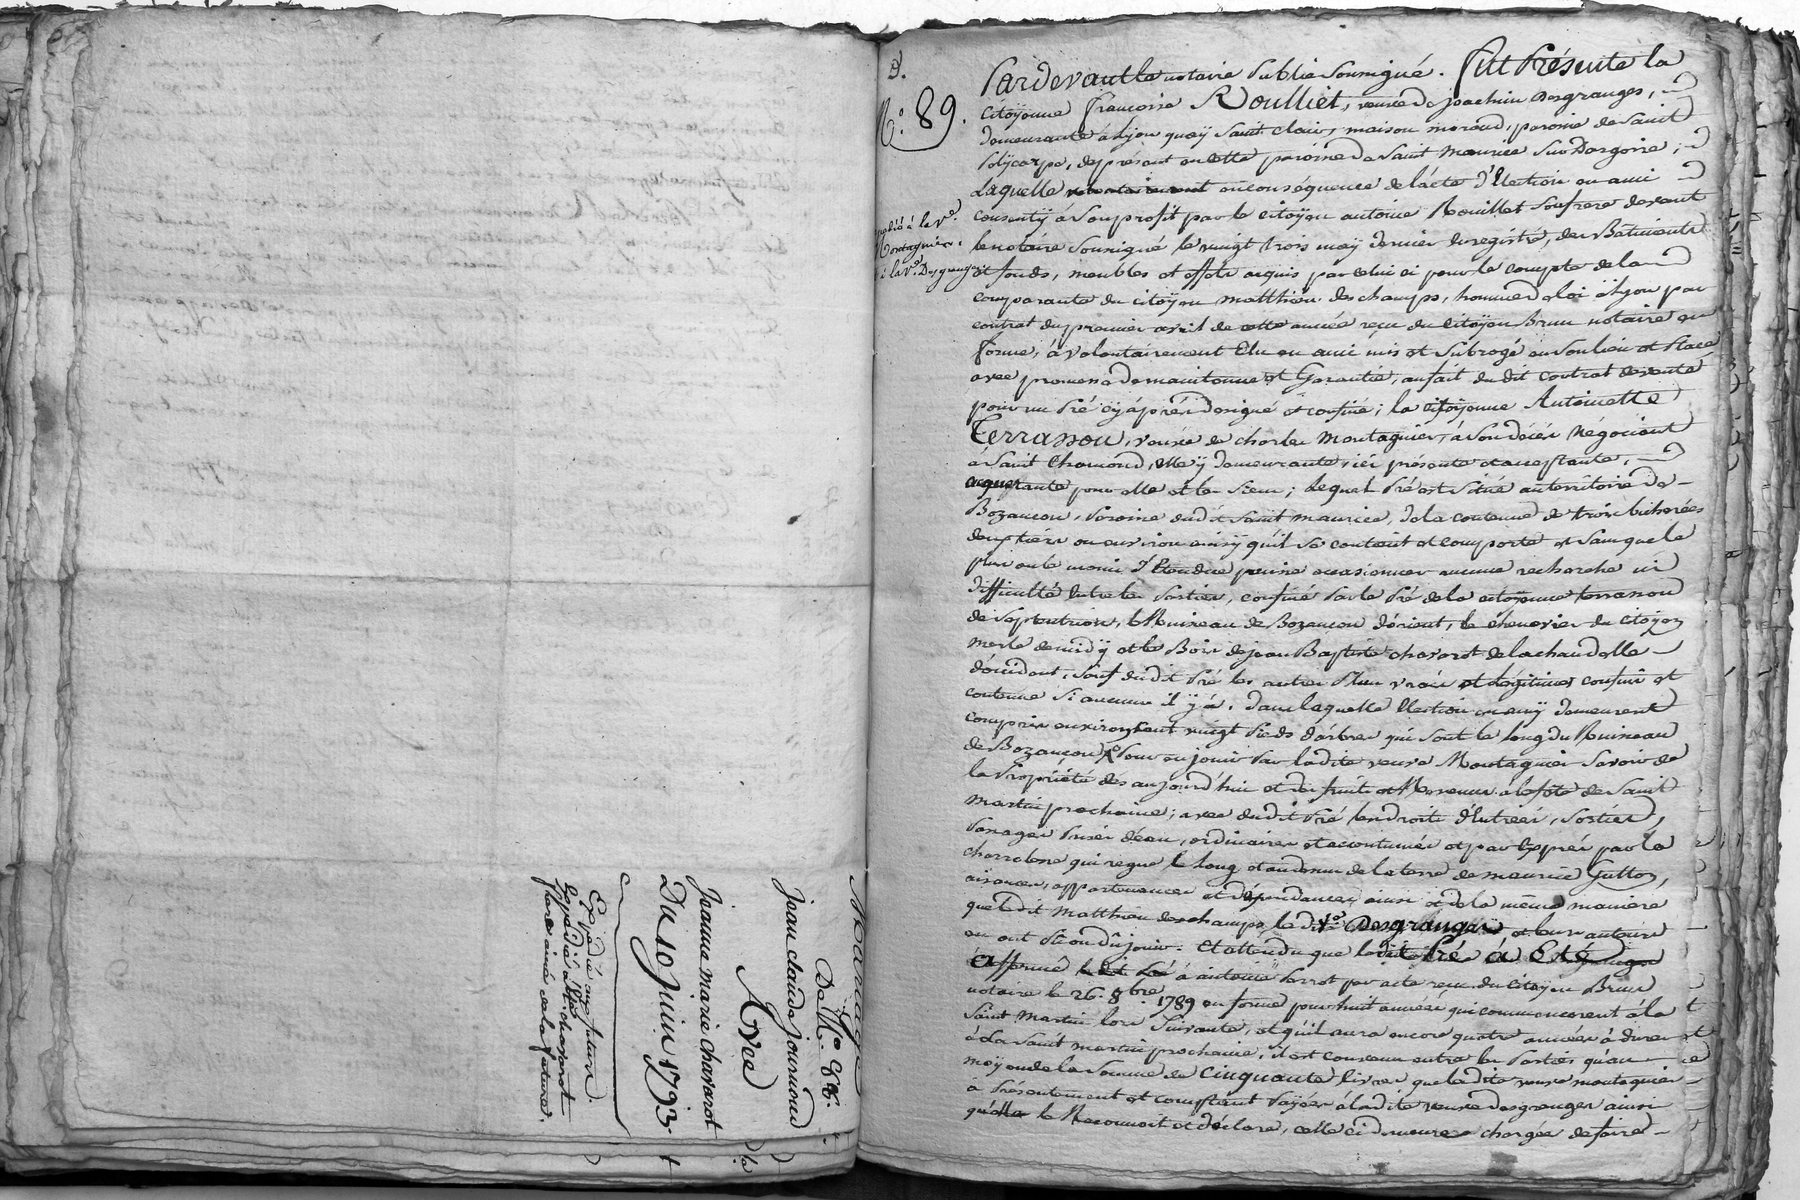 Mariage
Du N.o 88.
jean claude journoud
Avec
jeanne marie chavarot
Du 10 juin 1793.
Expédié au futur
Expédié à jean chavarot
frere ainé de la future.
N.o 89.
expédié à la v.e
Montagnier.
à la v.e Desgranges
Pardevant le notaire Public soussigné. Fut Présente la
Citoÿenne françoise Roulliet, veuve de joachim Desgranges,
demeurante à Lyon quaÿ Saint Clair, maison morand, paroisse de Saint
Polÿcarpe, de présent en cette paroisse de Saint Maurice Sur Dargoire,
Laquelle en conséquence de l'acte d'Election en ami
consenty à son profit par le citoÿen antoine Rouillet son frere devant
le notaire soussigné le vingt trois maÿ dernier enregistré, des Batiments
et fonds, meubles et effets acquis par celui ci pour le compte de la
comparante du citoÿen matthieu deschamps, homme de loi à Lyon par
contrat du premier avril de cette année reçu du citoÿen Brun notaire en
forme, à volontairement Elu en ami mis et Subrogé en son lieu et Place
avec promesse de maintenue et Garantie, au fait du dit contrat de vente
pour un Pré cÿ après désigné et confiné; la citoÿenne Antoinette
Terrasson, veuve de charles Montagnier, à son décès Negociant
à Saint Chamond, elle ÿ demeurante, ici présente et acceptante,
acquerante pour elle et les siens; lequel Pré est situé au territoire de
Bozançon, Paroisse du dit Saint maurice, de la contenue de trois bicherées
deux tiers ou environ ainsÿ qu'il se contient et comporte et sans que le
plus ou le moins d'Etendue puisse occasionner aucune recherche ni
difficulté entre les Parties, confiné par le Pré de la citoÿenne terrasson
de Septentrion, le Ruisseau de Bozançon d'orient, le chenevier du citoÿen
merle de midÿ et le Bois de jean Baptiste chavarot de la chaudelle
d'occident, sauf du dit Pré les autres Plus vrais et Légitimes confins et
contenue si aucune il ÿ à. dans laquelle Election en amÿ demeurent
compris environ cent vingt Pieds d'arbres qui sont le long du Ruisseau
de Bozançon, Pour en jouir par ladite veuve Montagnier Savoir de
la Propriété dès aujourd'hui et des fruits et Revenus à la fête de Saint
Martin prochaine; avec du dit Pré les droits d'Entrées, Sorties,
Passages Prises d'eau, ordinaires et accoutumés et par Exprès par la
charriere qui regne le long et au dessus de la terre de maurice Gutton,
aisances, appartenances et dépendances, ainsi et de la même maniere
que le dit Matthieu deschamps, la dite v.e Desgranges et leurs auteurs
en ont Pû ou Dû jouir. Et attendu que le dit Pré à Eté
affermé à antoine Perrot par acte reçu du citoÿen Brun
notaire le 26. 8.bre 1789 en forme pour huit années qui commencerent à la
Saint Martin lors Suivante, et qu'il aura encore quatre années à durer
à La Saint martin prochaine, il est convenu entre les Parties qu'au
moÿen de la somme de Cinquante livres que ladite veuve montagnier
a Présentement et comptant Païées à ladite veuve desgranges ainsi
qu'elle le Reconnoit et déclare, celle ci demeure chargée de faire